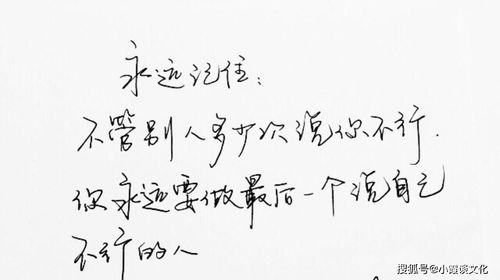 永远记住：
不管别人多少次说你不行.
你永远要做最后一个说自己
不行的人
搜狐号@小霞谈文化